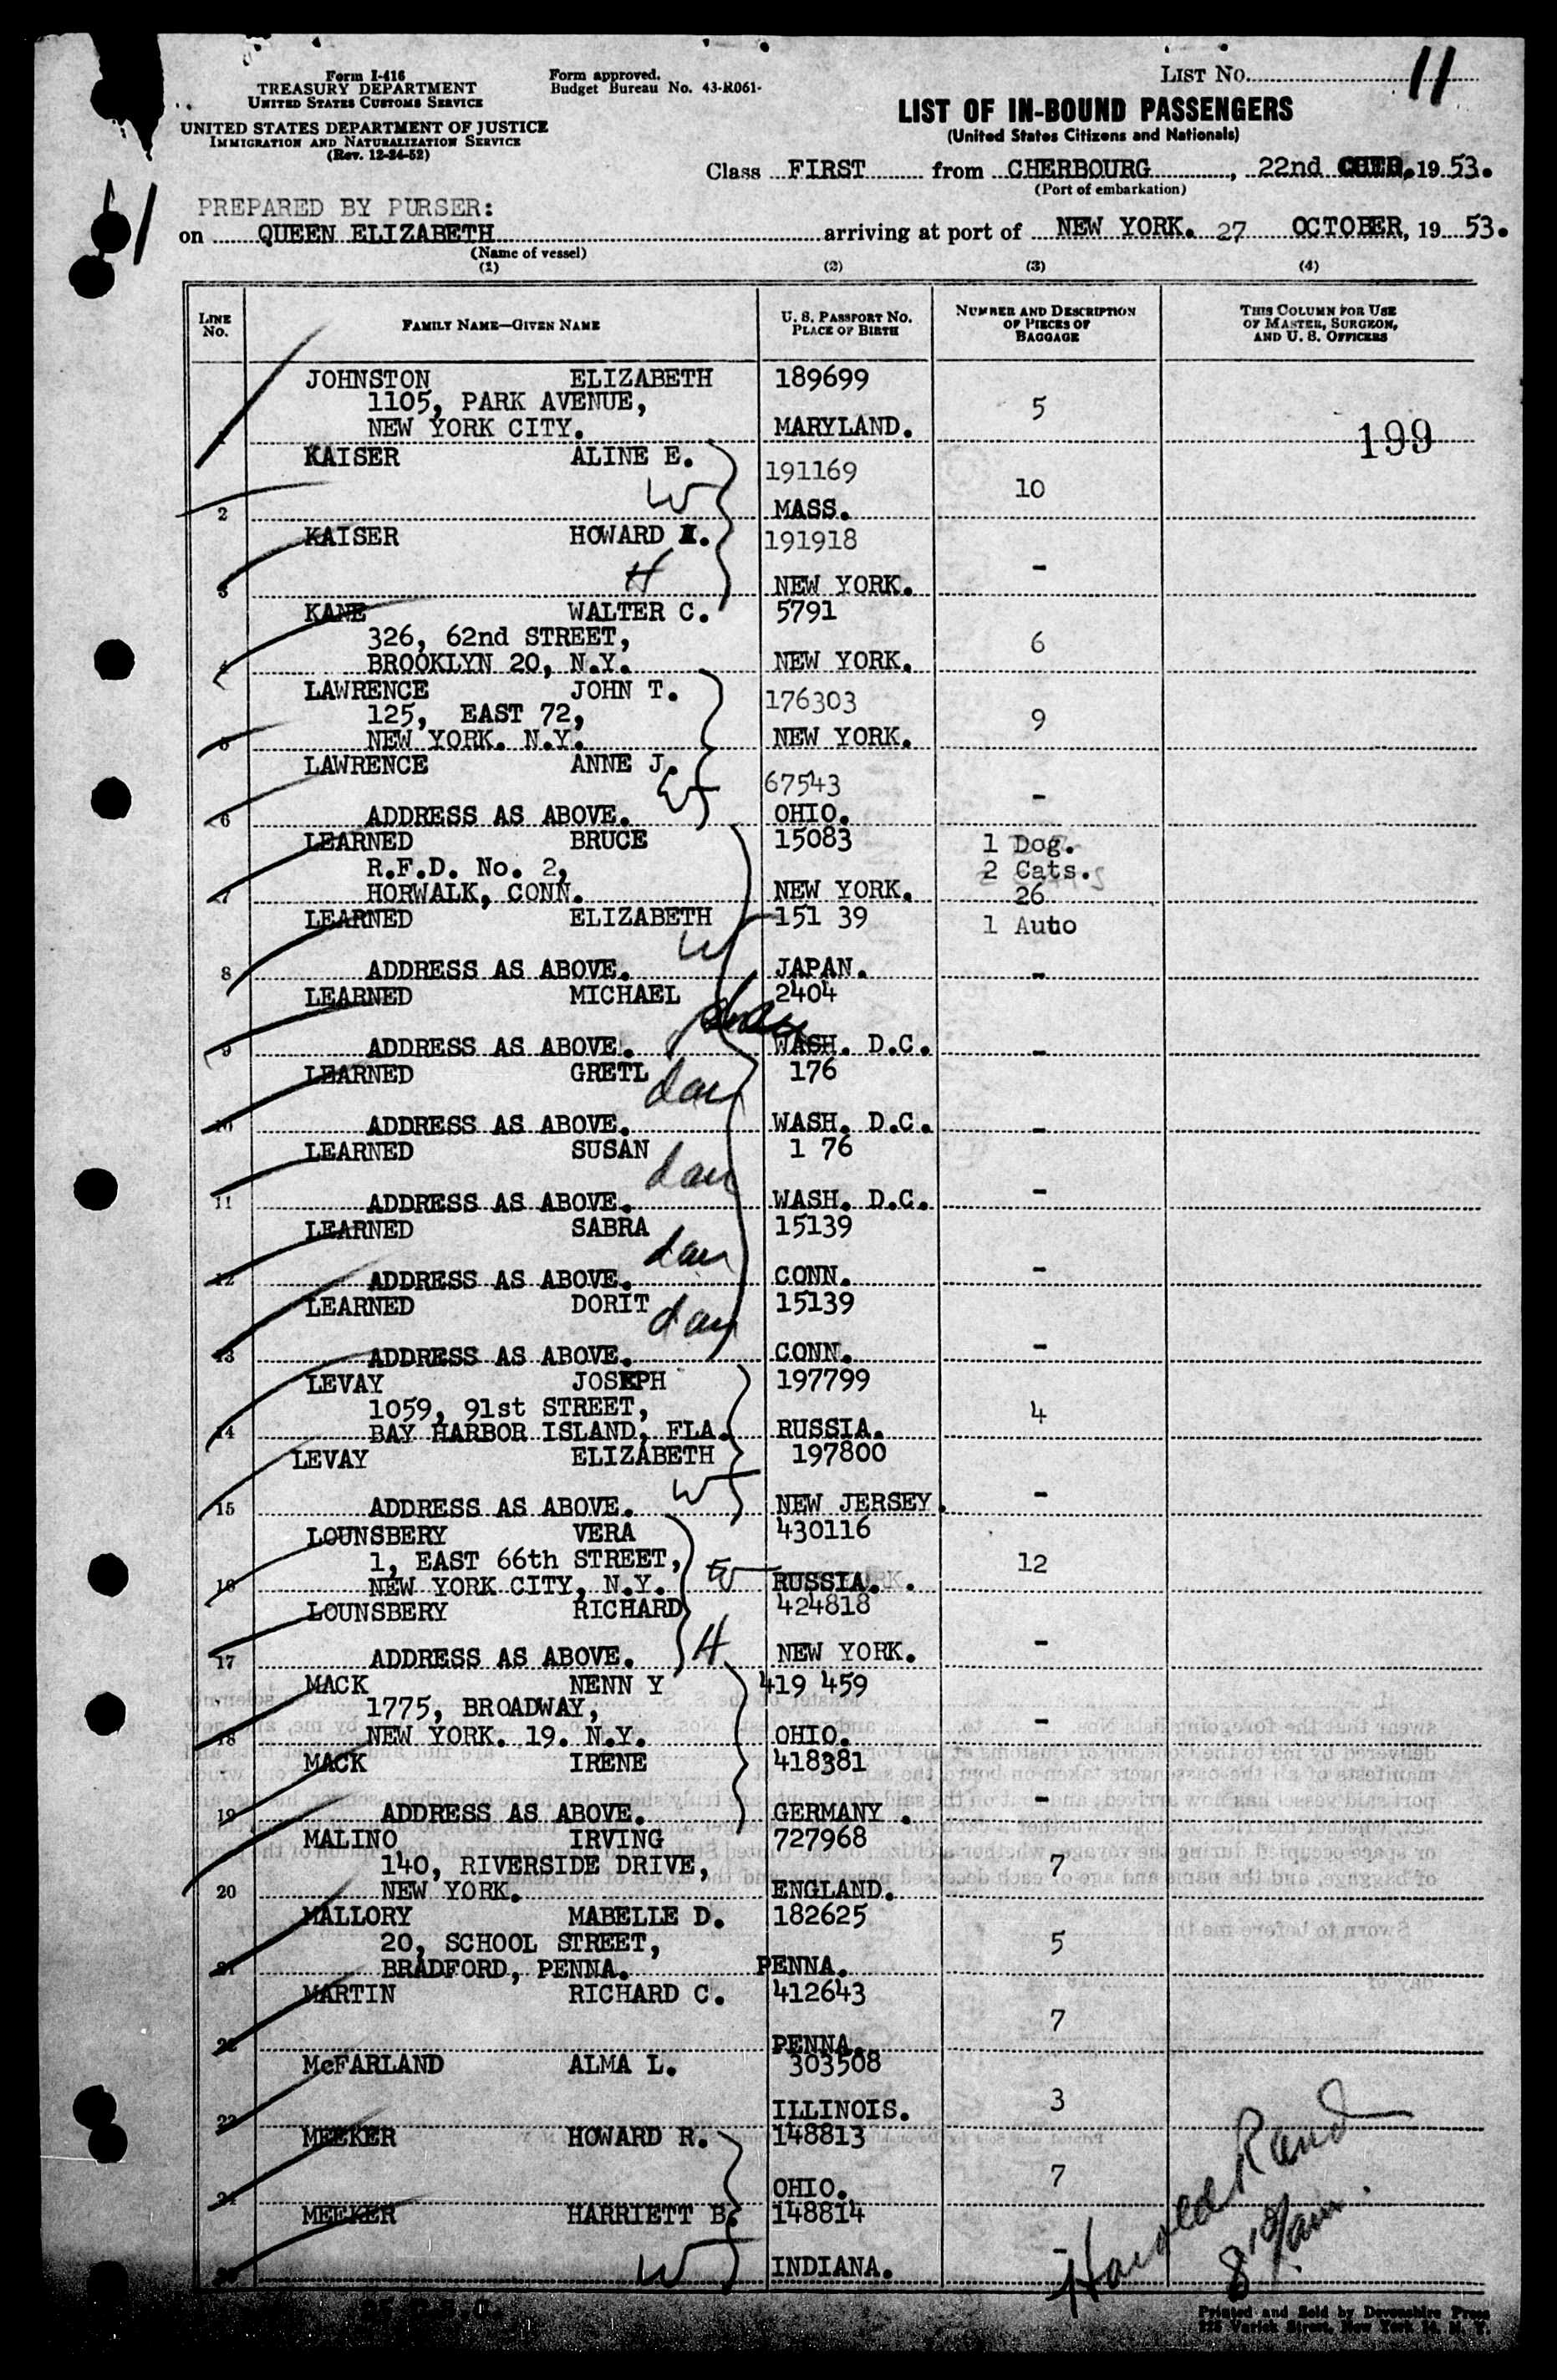 Form I-416
TREASURY DEPARTMENT
UNITED STATES CUSTOMS SERVICE
UNITED STATES DEPARTMENT OF JUSTICE
IMMIGRATION AND NATURALIZATION SERVICE
(Rev. 12-24-52)
Form approved.
Budget Bureau No. 43-R061-
LIST NO. 11
LIST OF IN-BOUND PASSENGERS
(United States Citizens and Nationals)
Class FIRST from CHERBOURG, 22nd 19 53.
(Port of embarkation)
PREPARED BY PURSER:
on QUEEN ELIZABETH arriving at port of NEW YORK. 27 OCTOBER, 19 53.
(Name of vessel)
(1) (2) (3) (4)
LINE NO.
FAMILY NAME—GIVEN NAME
U. S. PASSPORT NO.
PLACE OF BIRTH
NUMBER AND DESCRIPTION
OF PIECES OF
BAGGAGE
THIS COLUMN FOR USE
OF MASTER, SURGEON,
AND U. S. OFFICERS
JOHNSTON ELIZABETH 189699
1105, PARK AVENUE, 5
NEW YORK CITY. MARYLAND. 199
KAISER ALINE E. 191169
W 10
2 MASS.
KAISER HOWARD 191918
H -
3 NEW YORK.
KANE WALTER C. 5791
326, 62nd STREET, 6
4 BROOKLYN 20, N.Y. NEW YORK.
LAWRENCE JOHN T. 176303
125, EAST 72, 9
5 NEW YORK. N.Y. NEW YORK.
LAWRENCE ANNE J. 67543
W -
6 ADDRESS AS ABOVE. OHIO.
LEARNED BRUCE 15083 1 Dog.
R.F.D. No. 2, 2 Cats.
7 HORWALK, CONN. NEW YORK. 26
LEARNED ELIZABETH 151 39 1 Auto
W
8 ADDRESS AS ABOVE. JAPAN. -
LEARNED MICHAEL 2404
9 ADDRESS AS ABOVE. WASH. D.C. -
LEARNED GRETL 176
dau
10 ADDRESS AS ABOVE. WASH. D.C. -
LEARNED SUSAN 1 76
dau
11 ADDRESS AS ABOVE. WASH. D.C. -
LEARNED SABRA 15139
dau
12 ADDRESS AS ABOVE. CONN. -
LEARNED DORIT 15139
dau
13 ADDRESS AS ABOVE. CONN. -
LEVAY JOSEPH 197799
1059, 91st STREET, 4
14 BAY HARBOR ISLAND, FLA. RUSSIA.
LEVAY ELIZABETH 197800
W
15 ADDRESS AS ABOVE. NEW JERSEY. -
LOUNSBERY VERA 430116
1, EAST 66th STREET, W 12
16 NEW YORK CITY, N.Y. RUSSIA.
LOUNSBERY RICHARD 424818
H
17 ADDRESS AS ABOVE. NEW YORK. -
MACK NENN Y 419 459
1775, BROADWAY, -
18 NEW YORK. 19. N.Y. OHIO.
MACK IRENE 418381
19 ADDRESS AS ABOVE. GERMANY. -
MALINO IRVING 727968
140, RIVERSIDE DRIVE, 7
20 NEW YORK. ENGLAND.
MALLORY MABELLE D. 182625
20, SCHOOL STREET, 5
21 BRADFORD, PENNA. PENNA.
MARTIN RICHARD C. 412643
7
22 PENNA.
McFARLAND ALMA L. 303508
3
23 ILLINOIS.
MEEKER HOWARD R. 148813
7
24 OHIO.
MEEKER HARRIETT B. 148814
W -
INDIANA.
Harold Rand
Printed and Sold by Devonshire Press